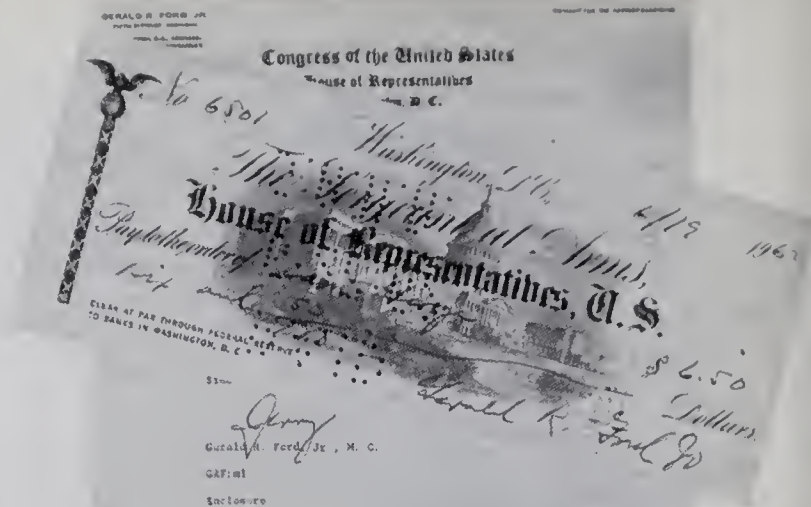 GERALD R FORD JR
Congress of the United States
House of Representatives
D. C.
No 6501
Washington, D.C.
6/19 196
The Sergeant at Arms,
House of Representatives, U. S.
Pay to the order of
six and 50
$ 6.50
Dollars.
CLEAR AT PAR THROUGH FEDERAL RESERVE
TO BANKS IN WASHINGTON, D. C.
Gerald R. Ford Jr
Jerry
Gerald R. Ford, Jr., M. C.
GRF:ml
Enclosure